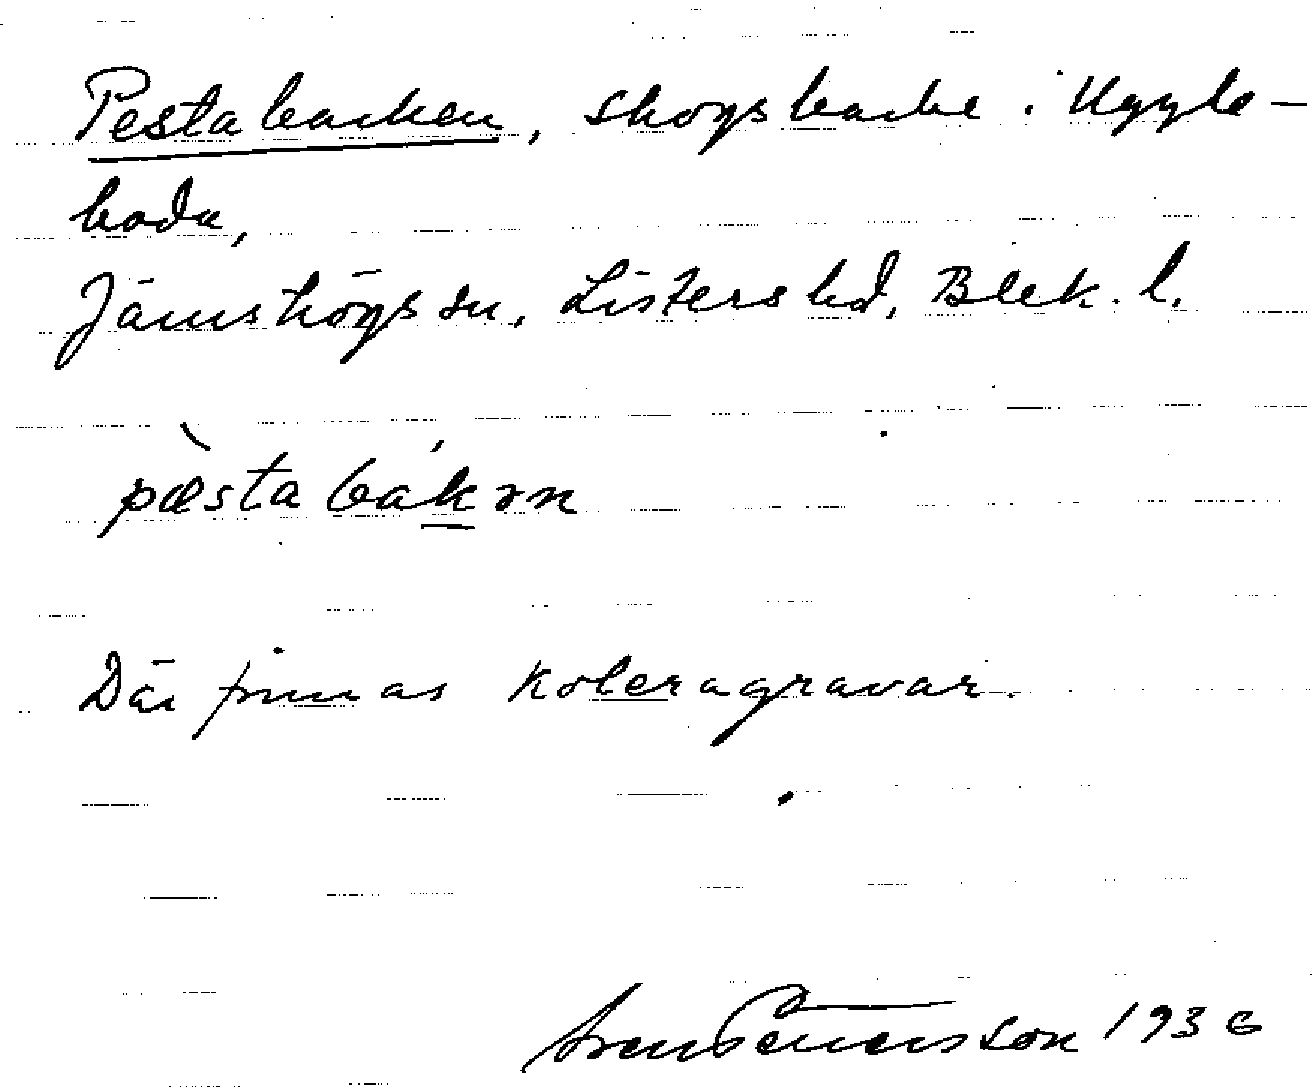 Pestabacken, skogsbacke i Uggle-
boda,
Jämshögs sn, Listers hd, Blek. l.
pæstabákɘn
Där finnas koleragravar.
Sven 1936